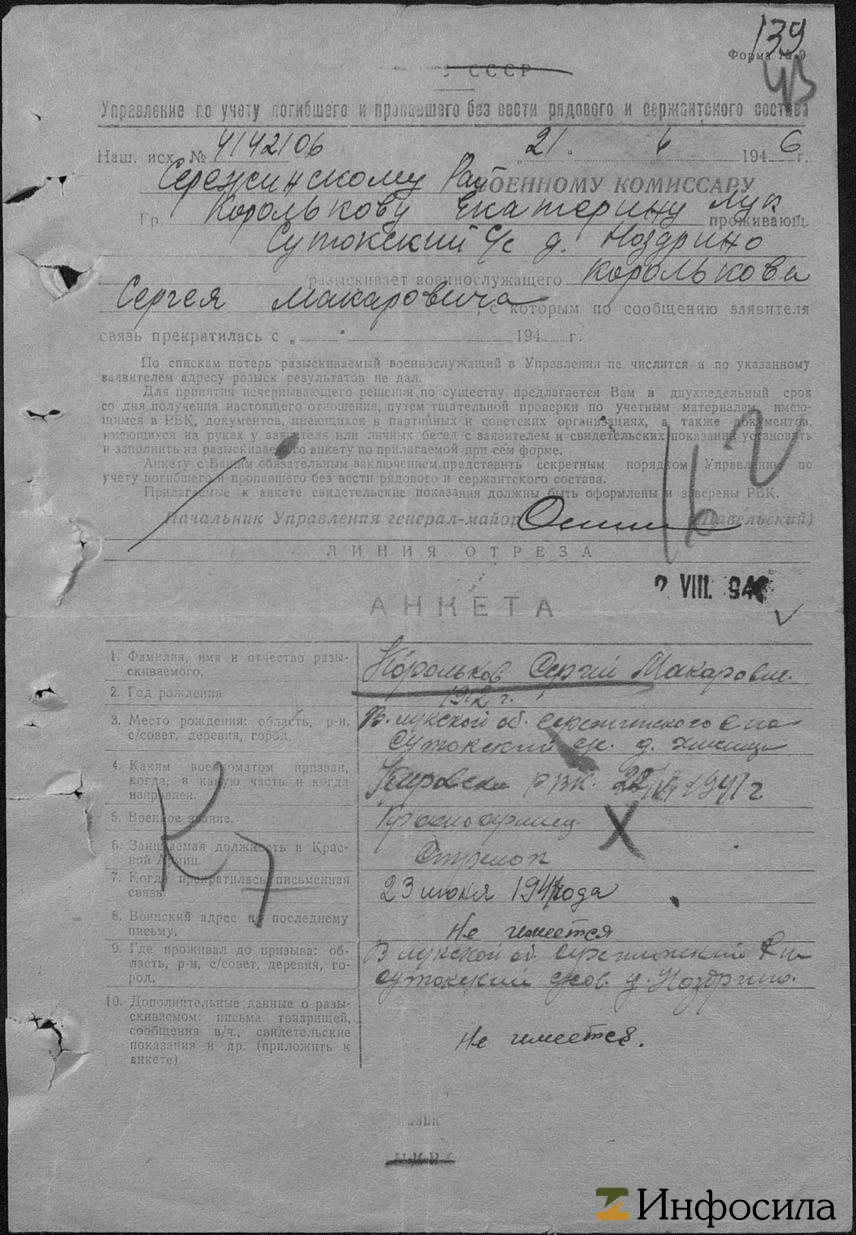 139
Форма № 9
43
СССР
Управление по учету погибшего и пропавшего без вести рядового и сержантского состава
Наш. исх. № 4142106 „21„ 4 1946 г.
Сережинскому Рай ВОЕННОМУ КОМИССАРУ
Гр. Королькову Екатерину Лук проживающ.
Сутокский с/с д. Ноздрино
разыскивает военнослужащего Королькова
Сергея Макаровича, с которым по сообщению заявителя
связь прекратилась с „ “ 194 г.
По спискам потерь разыскиваемый военнослужащий в Управлении не числится и по указанному
заявителем адресу розыск результатов не дал.
Для принятия исчерпывающего решения по существу предлагается Вам в двухнедельный срок
со дня получения настоящего отношения, путем тщательной проверки по учетным материалам, имею-
щимся в РВК, документов, имеющихся в партийных и советских организациях, а также документов,
имеющихся на руках у заявителя или личных бесед с заявителем и свидетельских показаний установить
и заполнить на разыскиваемого анкету по прилагаемой при сем форме.
Анкету с Вашим обязательным заключением представить секретным порядком Управлению по
учету погибшего и пропавшего без вести рядового и сержантского состава.
Прилагаемые к анкете свидетельские показания должны быть оформлены и заверены РВК.
Начальник Управления генерал-майор (Павельский)
ЛИНИЯ ОТРЕЗА
VIII. 946
АНКЕТА
1. Фамилия, имя и отчество разы-
скиваемого. Корольков Сергей Макарович
2. Год рождения
3. Место рождения: область, р-н,
с/совет, деревня, город. В. лукской об. Сережинского р-на
Сутокский с/с. д.
4. Каким военкоматом призван,
когда, в какую часть и когда
направлен. РВК. 1941 г
5. Военное звание. Красноармеец
6. Занимаемая должность в Крас-
ной Армии. Стрелок
7. Когда прекратилась письменная
связь. 23 июня 1941 года
8. Воинский адрес по последнему
письму. Не имеется
9. Где проживал до призыва: об-
ласть, р-н, с/совет, деревня, го-
род. В лукской об. Сережинский р-н
Сутокский с/сов. д. Ноздрино.
10. Дополнительные данные о разы-
скиваемом: письма товарищей,
сообщения в/ч., свидетельские
показания и др. (приложить к
анкете). Не имеется.
К 7
Инфосила